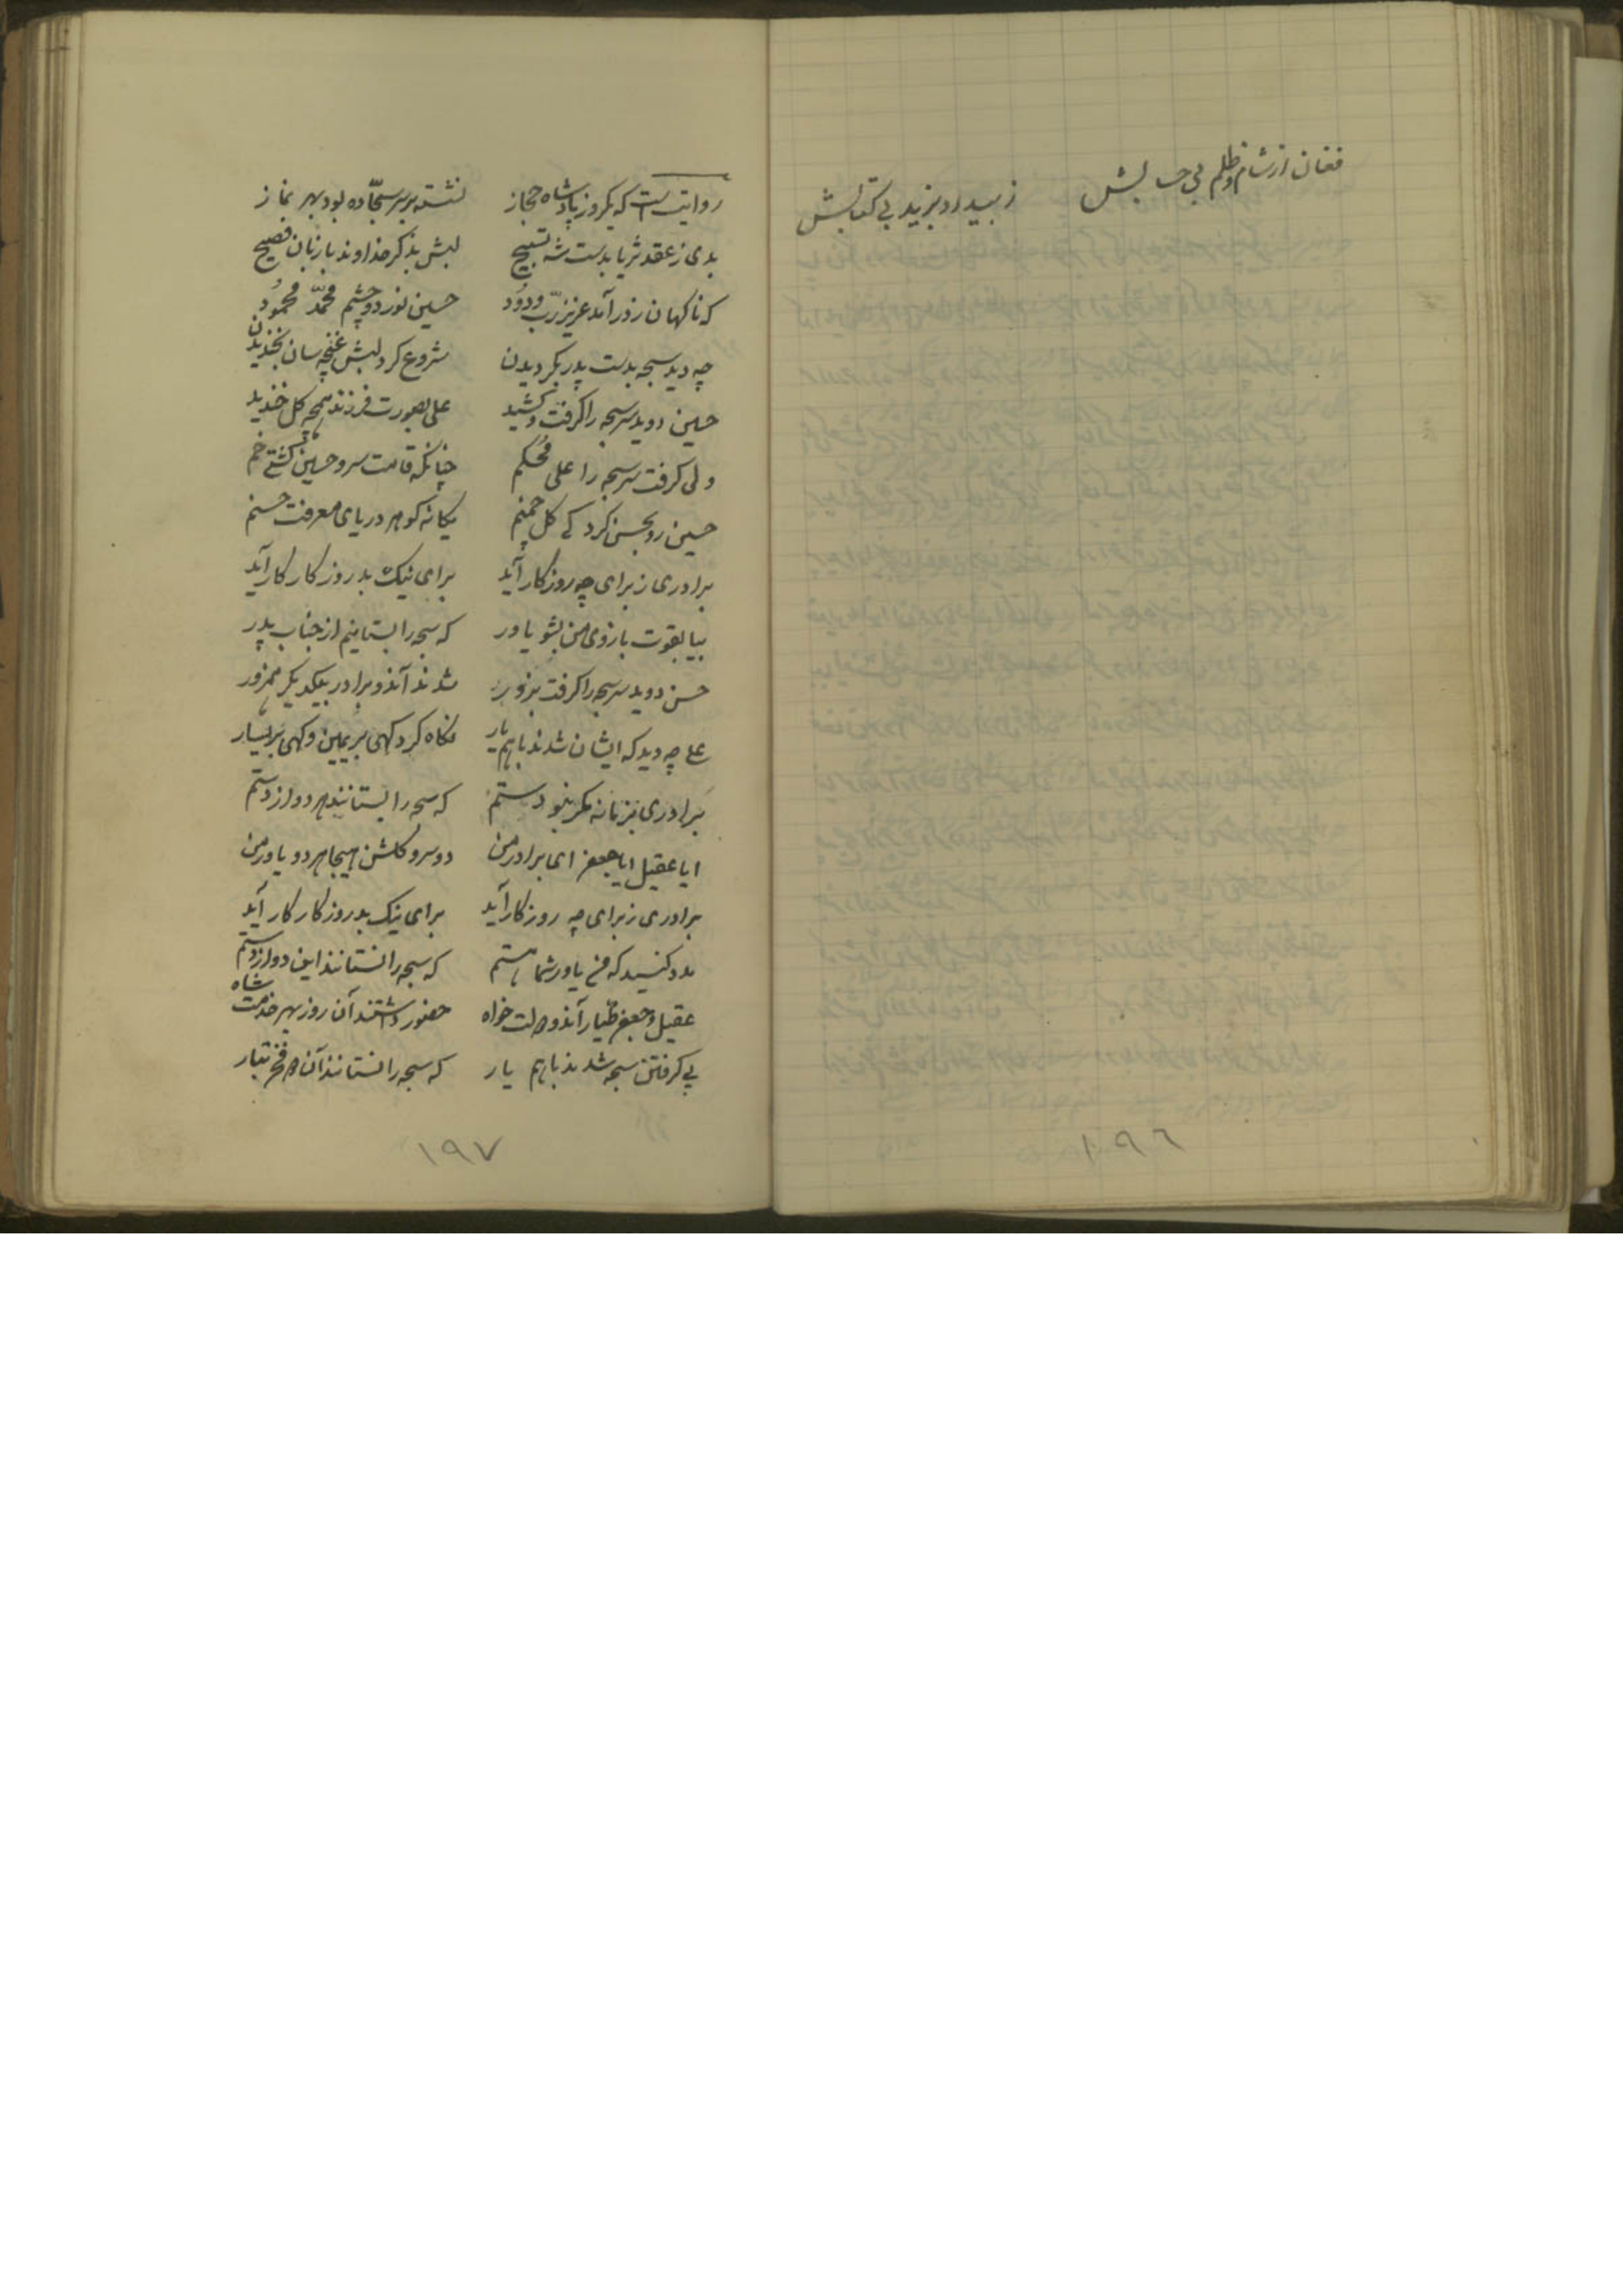 فغان از شام و ظلم بی حسابش
ز بیداد یزید بی کتابش
١٩٦
روایتست که یکروز پادشاه حجاز نشسته بر سر سجّاده بود بهر نماز
بدی ز عقد ثریا بدست شه تسبیح لبش بذکر خداوند با زبان فصیح
که ناکهان ز در آمد عزیز ربّ ودُود حسین نور دو چشم محمّد محمُود
چه دید سبحه بدست پدر بکردیدن شروع کرد لبش غنچه سان بخندیدن
حسین دوید سر سبحه را کرفت و کشید علی بصورت فرزند همچه کل خندید
ولی کرفت سر سبحه را علی مُحکم چنانکه قامت سرو حسین کشتی خم
حسین رو بحسن کرد کی کل چمنم یکانه کوهر دریای معرفت حسنم
برادری ز برای چه روز کار آید برای نیک بد روزکار کار آید
بیا بقوت بازوی من بشو یاور که سبحه را بستانیم از جناب پدر
حسن دوید سر سبحه را کرفت بزور شدند آندو برادر بیکدیکر همزور
علی چه دید که ایشان شدند باهم یار نکاه کرد کهی بر یمین و کهی بر یسار
برادری بزمانه مکر نبود ستم که سبحه را بستانند هر دو از دستم
ایا عقیل ایا جعفر ای برادر من دو سرو کلشن هیجا هر دو یاور من
برادری ز برای چه روز کار آید برای نیک بد روزکار کار آید
مدد کنسید که من یاور شما هستم که سبحه را نستانند این دو از دستم
عقیل و جعفر طیار آندو دولت خواه حضور داشتند آن روز بهر خدمت شاه
پی کرفتن سبحه شدند باهم یار که سبحه را نستانند آن دو فخر تبار
١٩٧